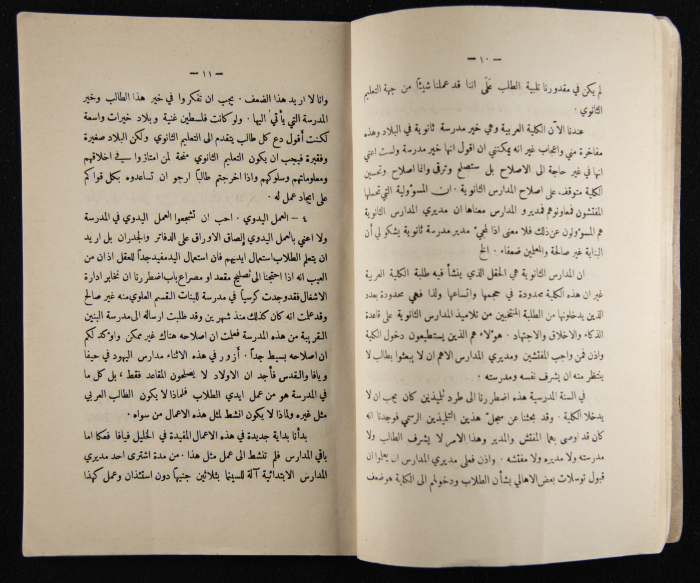 — ١٠ —
لم يكن في مقدورنا تلبية الطلب على اننا قد عملنا شيئًا من جهة التعليم
الثانوي .
عندنا الآن الكلية العربية وهي خير مدرسة ثانوية في البلاد وهذه
مفاخرة مني واعجاب غير انه يمكنني ان اقول انها خير مدرسة ولست اعني
انها في غير حاجة الى الاصلاح بل ستصلح وترقى وانما اصلاح وتحسين
الكلية متوقف على اصلاح المدارس الثانوية . ان المسؤولية التي تحملها
المفتشون فمعاونوهم فمديرو المدارس معناها ان مديري المدارس الثانوية
هم المسؤولون عن ذلك فلا معنى اذا لمجيء مدير مدرسة ثانوية يشكو لي أن
البناية غير صالحة والمعلمين ضعفاء . الخ
ان المدارس الثانوية هي الحقل الذي ينشأ فيه طلبة الكلية العربية
غير ان هذه الكلية محدودة في حجمها واتساعها ولذا فهي محدودة بعدد
الذين يدخلونها من الطلبة المنتخبين من تلاميذ المدارس الثانوية على قاعدة
الذكاء والاخلاق والاجتهاد . هؤلاء هم الذين يستطيعون دخول الكلية
واذن فمن واجب المفتشين ومديري المدارس الاهم ان لا يبعثوا بطالب لا
ينتظر منه ان يشرف نفسه ومدرسته .
في السنة المدرسية هذه اضطررنا الى طرد تلميذين كان يجب ان لا
يدخلا الكلية . وقد بحثنا عن سجل هذين التلميذين الرسمي فوجدنا انه
كان قد اوصى بهما المفتش والمدير وهذا الامر لا يشرف الطالب ولا
مدرسته ولا مديره ولا مفتشه . واذن فعلى مديري المدارس ان يعلموا ان
قبول توسلات بعض الاهالي بشأن الطلاب ودخولهم الى الكلية هو ضعف
— ١١ —
وانا لا اريد هذا الضعف . يجب ان تفكروا في خير هذا الطالب وخير
المدرسة التي يأتي اليها . ولو كانت فلسطين غنية وبلاد خيرات واسعة
لكنت أقول دع كل طالب يتقدم الى التعليم الثانوي ولكن البلاد صغيرة
وفقيرة فيجب ان يكون التعليم الثانوي منحة لمن امتازوا في اخلاقهم
ومعلوماتهم وسلوكهم واذا اخرجتم طالبًا ارجو ان تساعدوه بكل قواكم
على ايجاد عمل له .
٤ — العمل اليدوي . احب ان تشجعوا العمل اليدوي في المدرسة
ولا اعني بالعمل اليدوي إلصاق الاوراق على الدفاتر والجدران بل اريد
ان يتعلم الطلاب استعمال ايديهم فان استعمال اليد مفيد جداً للعقل اذ ان من
العيب انه اذا احتجنا الى تصليح مقعد او مصراع باب اضطررنا ان نخابر ادارة
الاشغال فقد وجدت كرسياً في مدرسة للبنات القسم العلوي منه غير صالح
وقد علمت انه كان كذلك منذ شهرين وقد طلبت ارساله الى مدرسة البنين
القريبة من هذه المدرسة فعلمت ان اصلاحه هناك غير ممكن واؤكد لكم
ان اصلاحه بسيط جداً . أزور في هذه الاثناء مدارس اليهود في حيفا
ويافا والقدس فأجد ان الاولاد لا يصلحون المقاعد فقط ، بل كل ما
في المدرسة هو من عمل ايدي الطلاب فلماذا لا يكون الطالب العربي
مثل غيره ولماذا لا يكون انشط لمثل هذه الاعمال من سواه .
بدأنا بداية جديدة في هذه الاعمال المفيدة في الخليل فيافا فعكا اما
باقي المدارس فلم تنشط الى عمل مثل هذا . من مدة اشترى احد مديري
المدارس الابتدائية آلة للسينما بثلاثين جنيهاً دون استئذان وعمل كهذا